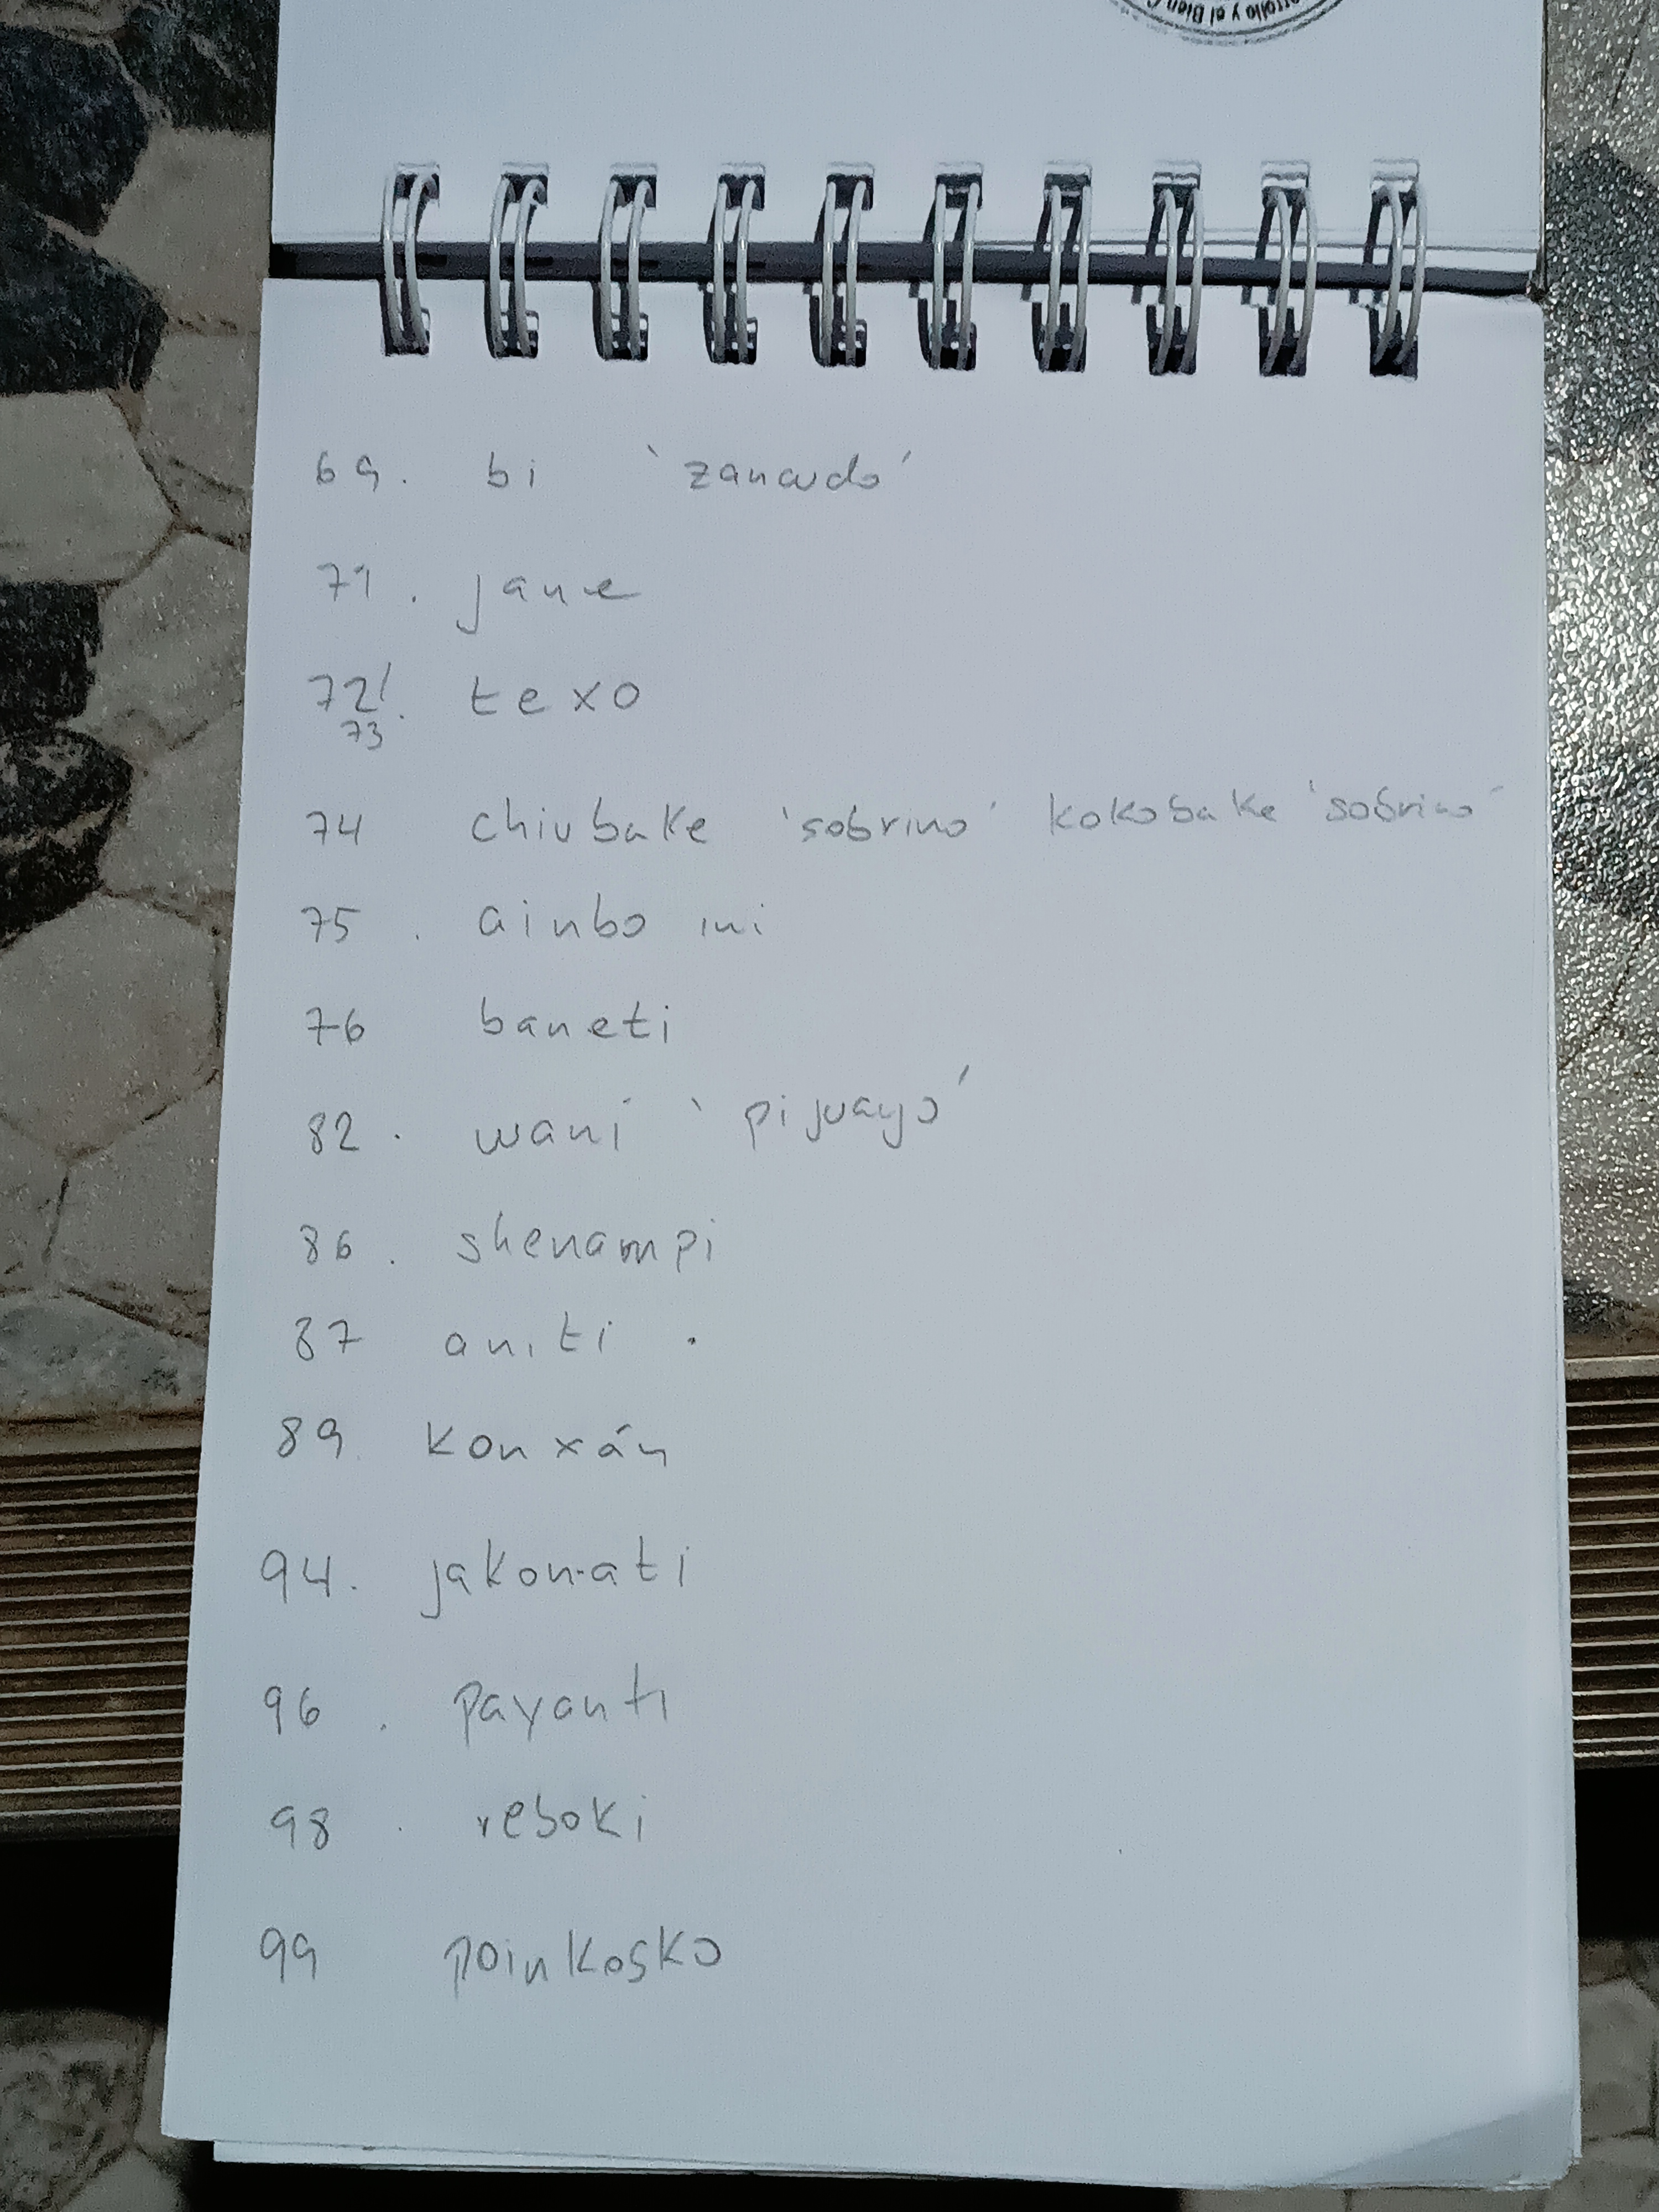 rrollo y el Bien
69. bi 'zancudo'
71. jane
72/
73. texo
74 chiubake 'sobrino' kokobake 'sobrino'
75. ainbo ini
76 baneti
82. wani 'pijuayo'
86. shenampi
87 aniti.
89. konxán
94. jakon-ati
96. payanti
98. reboki
99 poinkosko